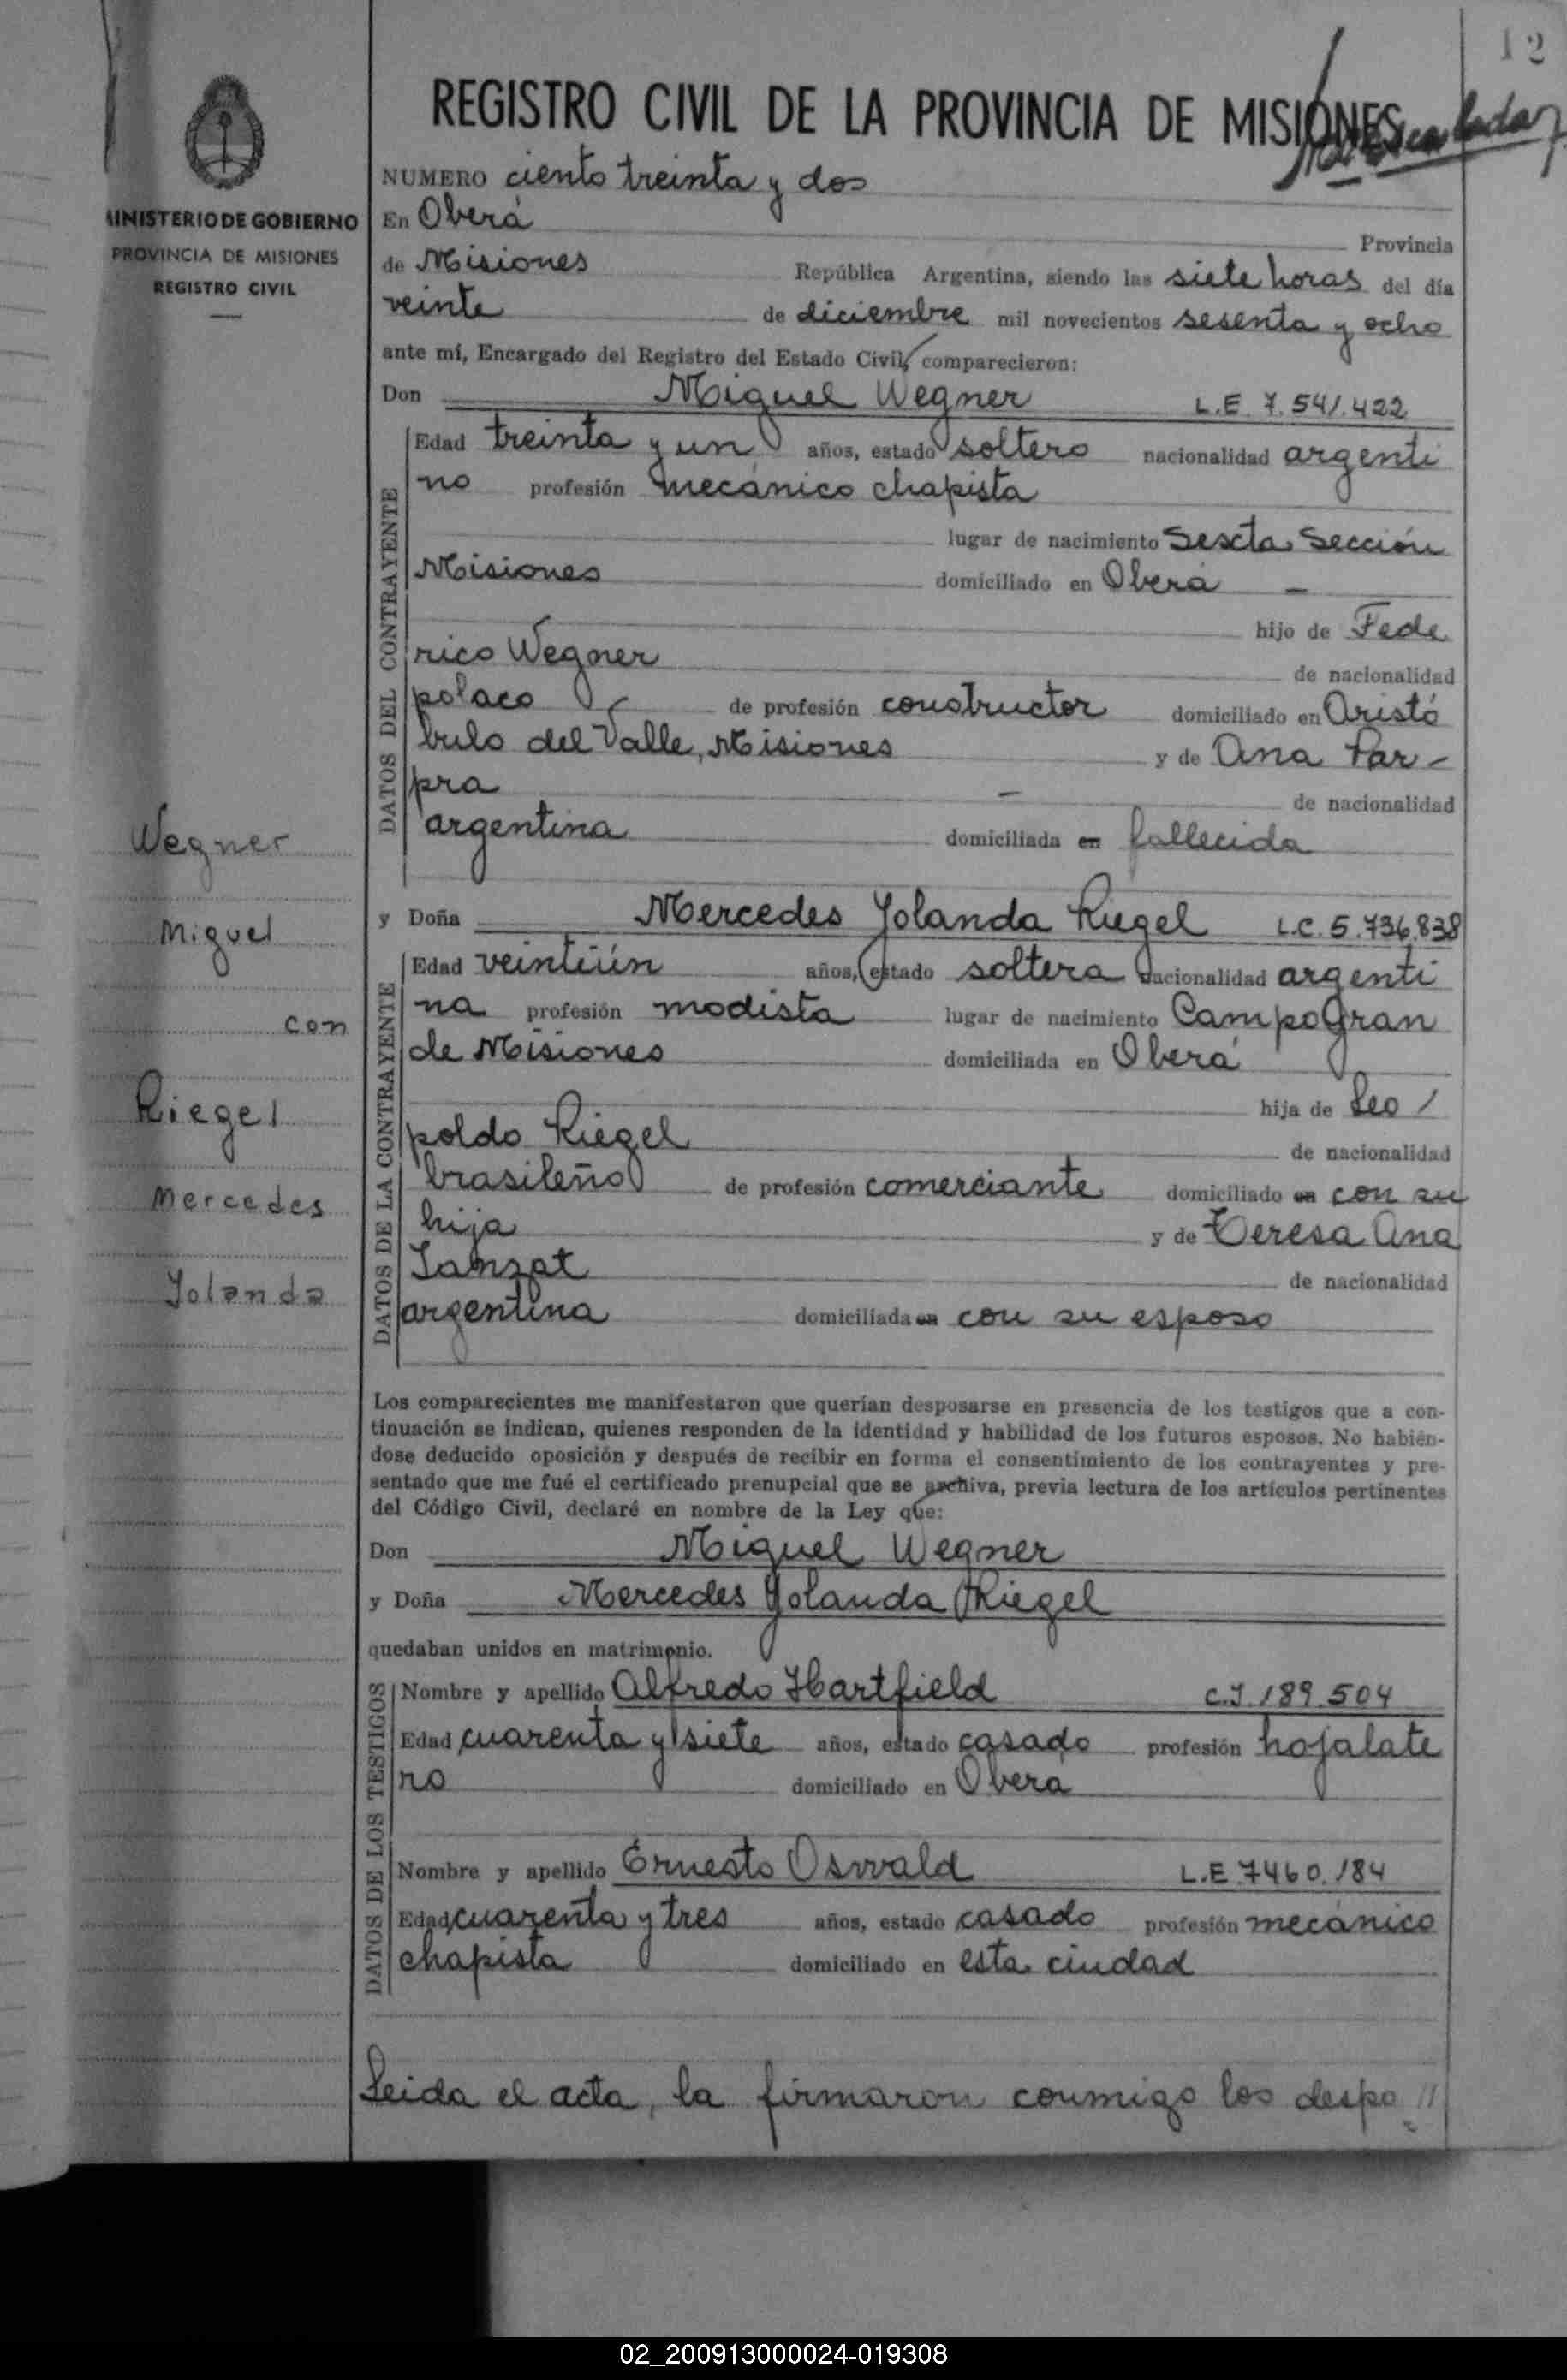 12
REGISTRO CIVIL DE LA PROVINCIA DE MISIONES
MINISTERIO DE GOBIERNO
PROVINCIA DE MISIONES
REGISTRO CIVIL
NUMERO ciento treinta y dos
En Oberá Provincia
de Misiones República Argentina, siendo las siete horas del día
veinte de diciembre mil novecientos sesenta y ocho
ante mí, Encargado del Registro del Estado Civil, comparecieron:
Don Miguel Wegner L.E. 7.541.422
DATOS DEL CONTRAYENTE
Edad treinta y un años, estado soltero nacionalidad argenti
no profesión mecánico chapista
lugar de nacimiento Sexta Sección
Misiones domiciliado en Oberá –
hijo de Fede
rico Wegner de nacionalidad
polaco de profesión constructor domiciliado en Aristó
bulo del Valle, Misiones y de Ana Par-
pra – de nacionalidad
argentina domiciliada en fallecida
Wegner
Miguel
con
Riegel
Mercedes
Yolanda
y Doña Mercedes Yolanda Riegel L.C. 5.736.838
DATOS DE LA CONTRAYENTE
Edad veintiún años, estado soltera nacionalidad argenti
na profesión modista lugar de nacimiento Campo Gran
de Misiones domiciliada en Oberá
hija de Leo /
poldo Riegel de nacionalidad
brasileño de profesión comerciante domiciliado en con su
hija y de Teresa Ana
de nacionalidad
argentina domiciliada en con su esposo
Los comparecientes me manifestaron que querían desposarse en presencia de los testigos que a con-
tinuación se indican, quienes responden de la identidad y habilidad de los futuros esposos. No habién-
dose deducido oposición y después de recibir en forma el consentimiento de los contrayentes y pre-
sentado que me fué el certificado prenupcial que se archiva, previa lectura de los artículos pertinentes
del Código Civil, declaré en nombre de la Ley que:
Don Miguel Wegner
y Doña Mercedes Yolanda Riegel
quedaban unidos en matrimonio.
DATOS DE LOS TESTIGOS
Nombre y apellido Alfredo Hartfield C.I. 189.504
Edad cuarenta y siete años, estado casado profesión hojalate
ro domiciliado en Oberá
Nombre y apellido Ernesto Oswald L.E. 7460.184
Edad cuarenta y tres años, estado casado profesión mecánico
chapista domiciliado en esta ciudad
Leida el acta, la firmaron conmigo los despo //
02_200913000024-019308